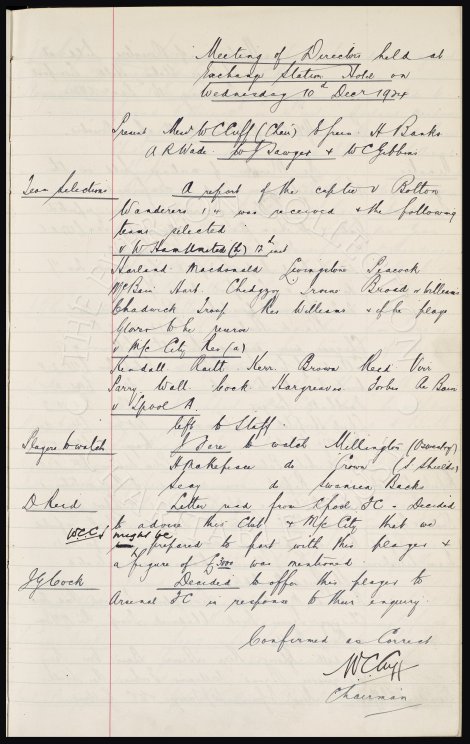 Meeting of Directors held at
Exchange Station Hotel on
Wednesday 10th Decr 1924
Present Messrs W C Cuff (Chair) E Green H Banks
A R Wade. W J Sawyer & W C Gibbins
Team Selections A report of the captain v Bolton
Wanderers 1/4 was received & the following
teams selected
v W Ham United (h) 13th inst
Harland Macdonald Livingstone Peacock
McBain Hart. Chedgzoy Irvine Broad & Williams
Chadwick Troup Res Williams & if he plays
to be reserve
v M/c City Res (a)
Kendall Raitt Kerr. Brown Reid Virr
Parry Wall Cock Hargreaves Forbes
v L'pool A.
left to Staff.
Players to watch to watch Millington (Oswestry)
H Makepeace do Crown (S Shields)
do Swansea Backs
D Reid Letter read from L'pool FC - Decided
to advise this Club & M/c City that we
WCC might be
prepared to part with this player &
a figure of £3000 was mentioned.
J G Cock Decided to offer this player to
Arsenal FC in response to their enquiry.
Confirmed as Correct
W C Cuff
Chairman